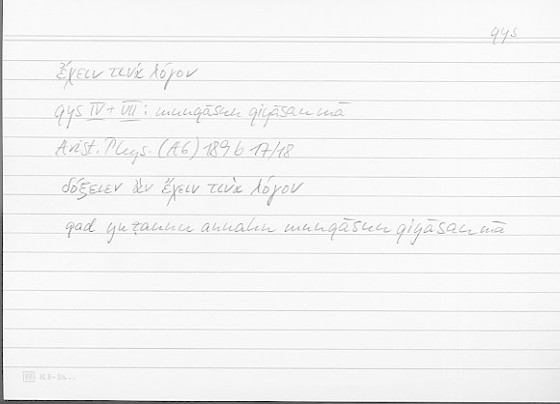 qys
ἔχειν τινὰ λόγον
qys IV + VII: munqāsun qiyāsan mā
Arist. Phys. (A6) 189b 17/18
δόξειεν ἂν ἔχειν τινὰ λόγον
qad yuẓannu annahu munqāsun qiyāsan mā